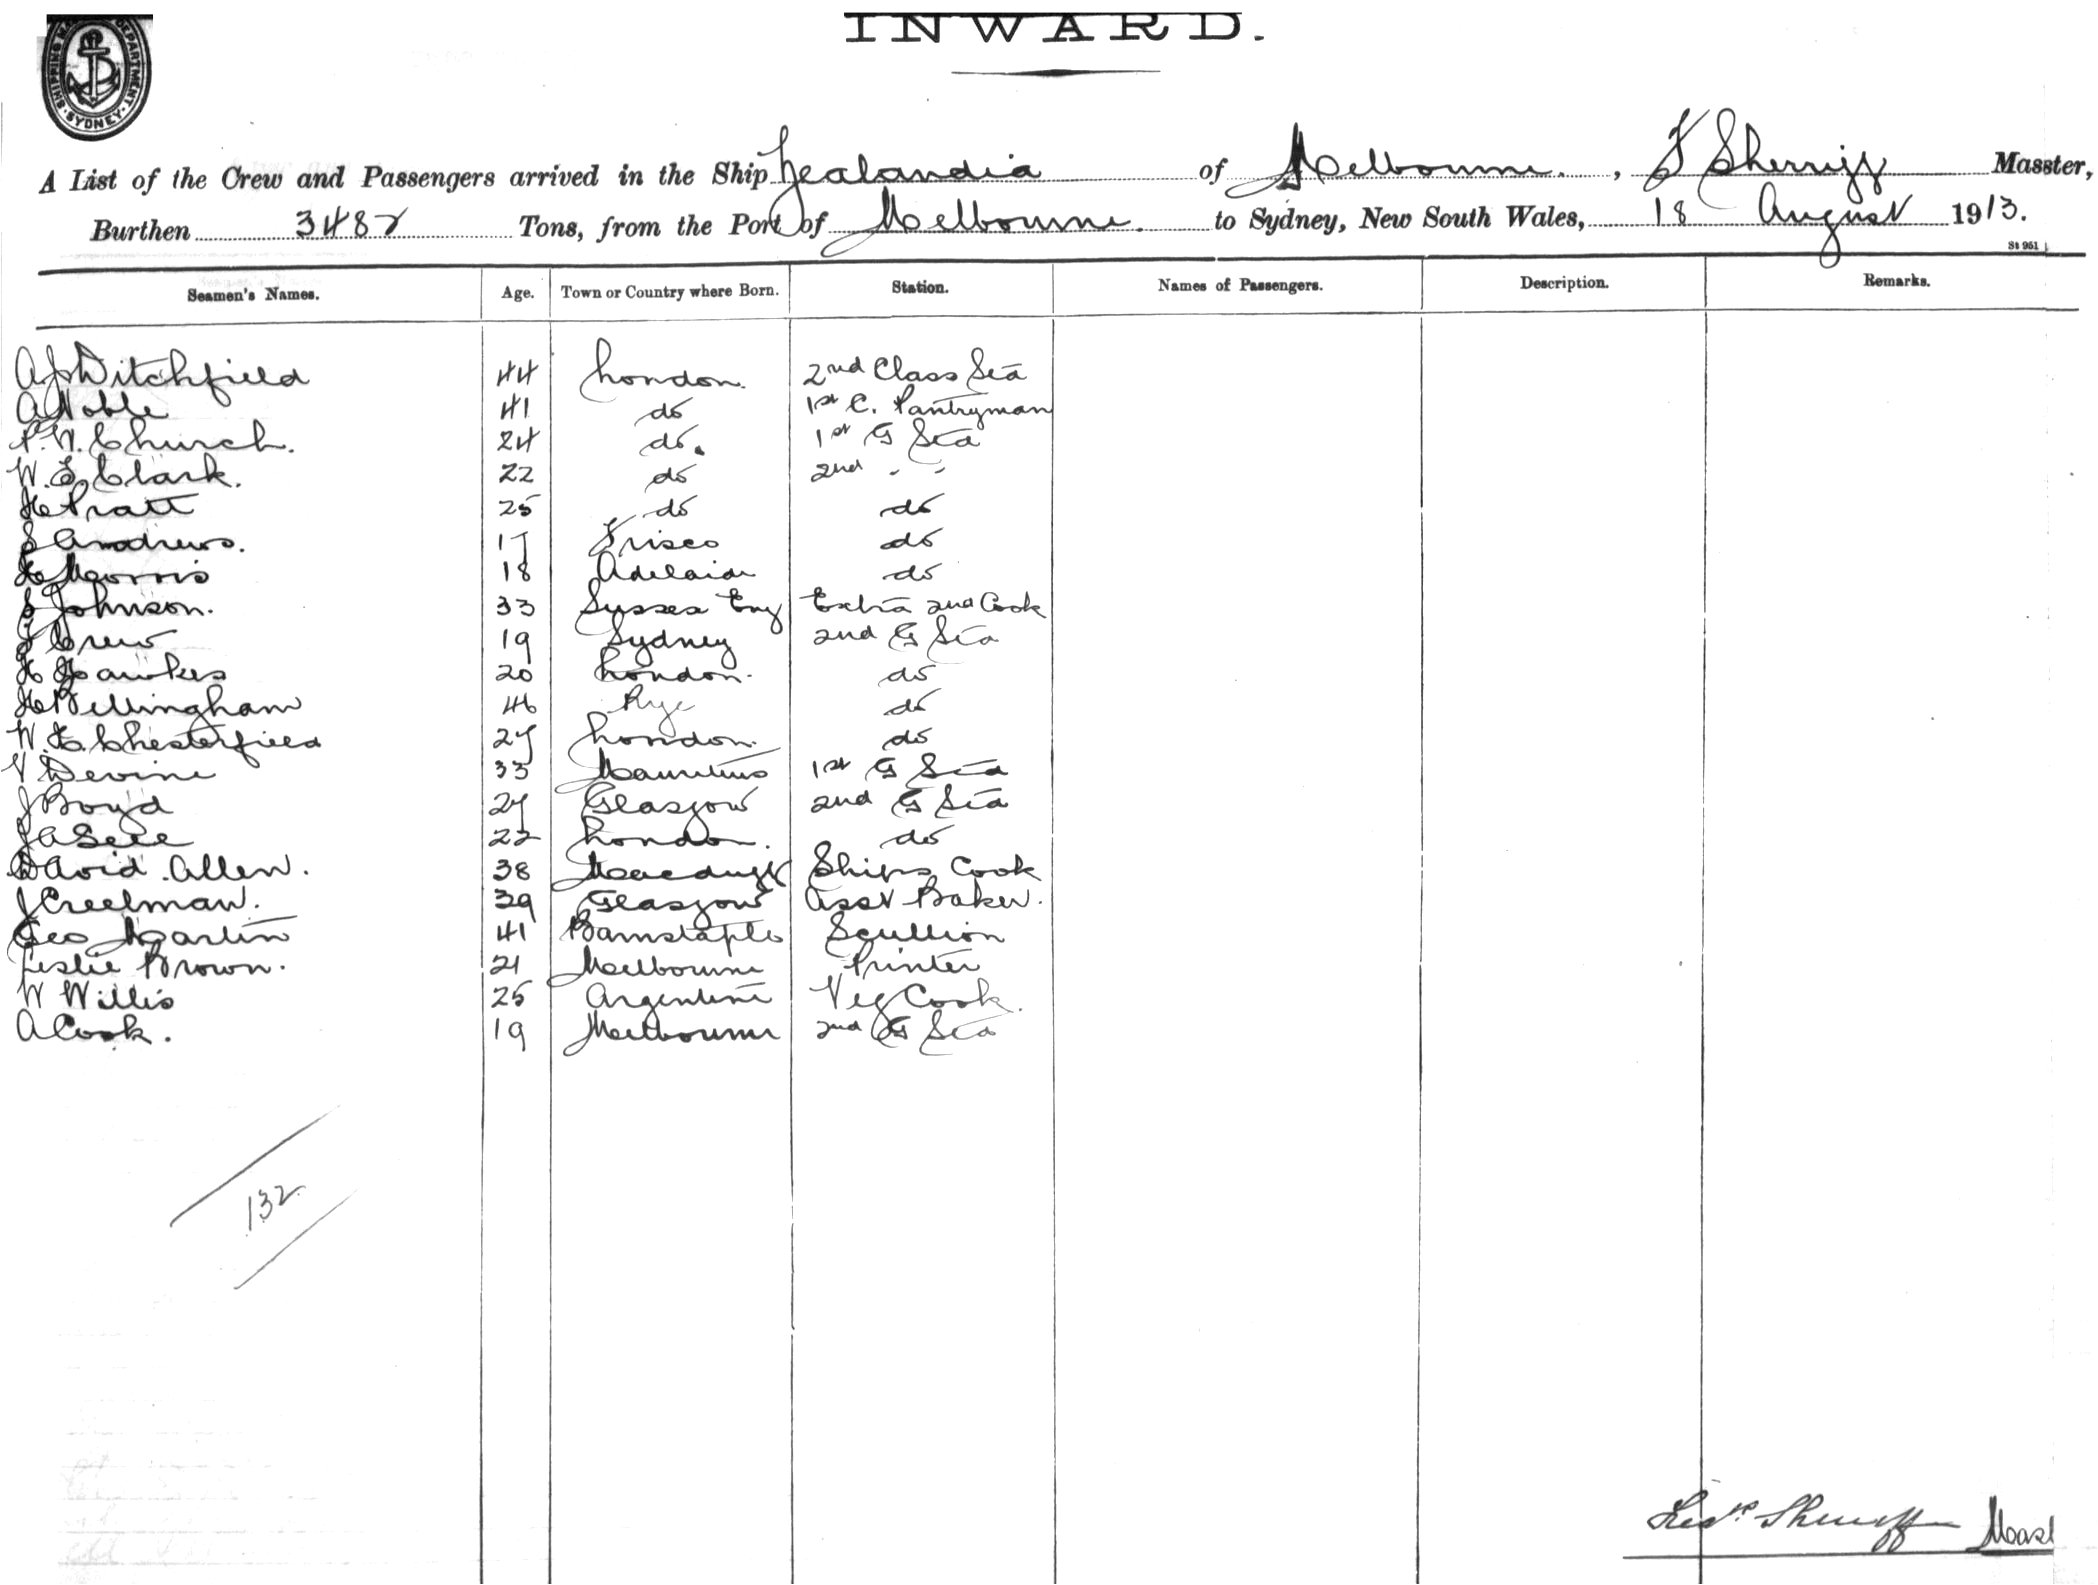 SHIPPING MASTER'S DEPARTMENT · SYDNEY ·
INWARD.
A List of the Crew and Passengers arrived in the Ship Zealandia of Melbourne, F Sherriff Masster,
Burthen 3482 Tons, from the Port of Melbourne to Sydney, New South Wales, 18 August 1913.
St 951
Seamen's Names. Age. Town or Country where Born. Station. Names of Passengers. Description. Remarks.
A J Ditchfield 44 London. 2nd Class Std
A Noble 41 do 1st C. Pantryman
P. W. Church. 24 do. 1st G Std
W. E. Clark. 22 do 2nd " "
H Pratt 25 do do
S Andrews. 17 Frisco do
H Morris 18 Adelaide do
S Johnson. 33 Sussex Eng Extra 2nd Cook
J Crew 19 Sydney 2nd G Std
H Hawkes 20 London. do
H Bellingham 46 Rye do
W. H. Chesterfield 27 London. do
V Devine 33 Mauritius 1st G Std
J Boyd 27 Glasgow 2nd G Std
J A Sell 22 London. do
David Allen. 38 Macduff Ships Cook
J Creelman. 39 Glasgow Asst Baker.
Geo Martin 41 Barnstaple Scullion
Leslie Brown. 21 Melbourne Printer
W Willis 25 Argentine Veg Cook.
A Cook. 19 Melbourne 2nd G Std
132
Sherriff Mast